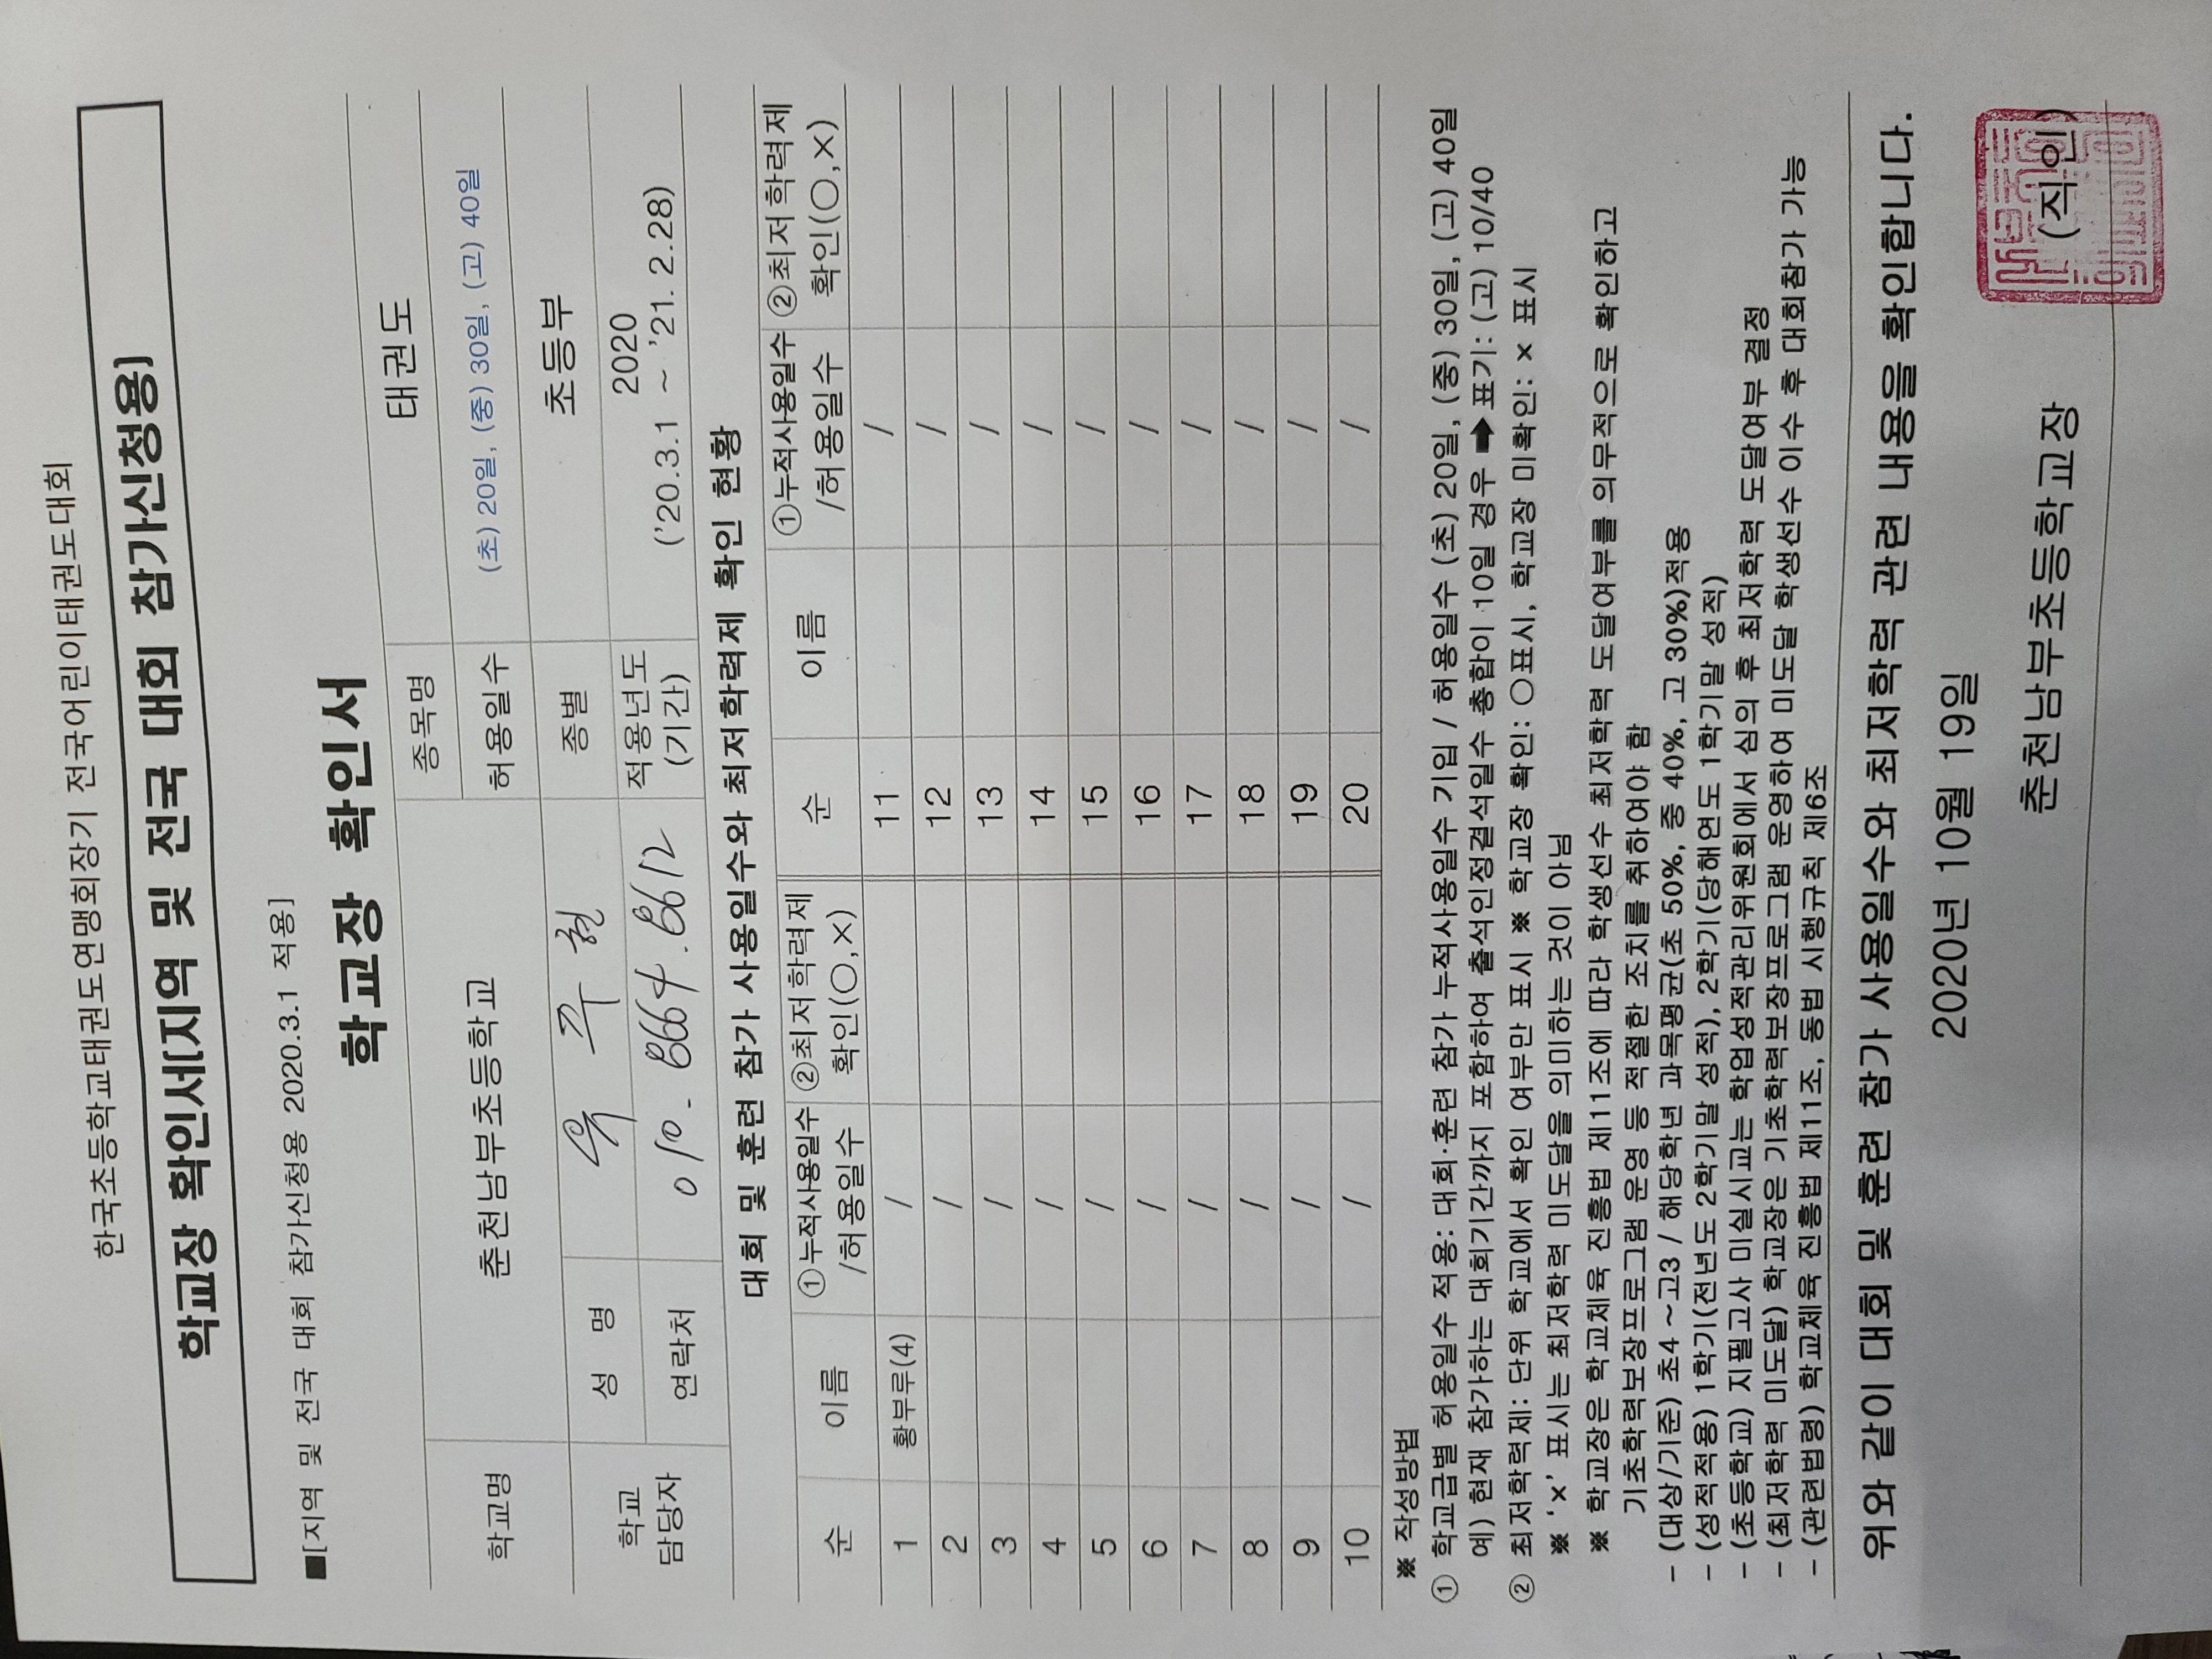 한국초등학교태권도연맹회장기 전국어린이태권도대회
학교장 확인서[지역 및 전국 대회 참가신청용]
■[지역 및 전국 대회 참가신청용 2020.3.1 적용]
학교장 확인서
학교명 춘천남부초등학교 종목명 태권도
허용일수 (초) 20일, (중) 30일, (고) 40일
학교 담당자 성 명 종별 초등부
연락처 010. 8664. 8612 적용년도 (기간) 2020 ('20.3.1 ~ '21. 2.28)
대회 및 훈련 참가 사용일수와 최저학력제 확인 현황
순 이름 ①누적사용일수 /허용일수 ②최저학력제 확인(○,×) 순 이름 ①누적사용일수 /허용일수 ②최저학력제 확인(○,×)
1 황부류(4) / 11 /
2 / 12 /
3 / 13 /
4 / 14 /
5 / 15 /
6 / 16 /
7 / 17 /
8 / 18 /
9 / 19 /
10 / 20 /
※ 작성방법
① 학교급별 허용일수 적용: 대회·훈련 참가 누적사용일수 기입 / 허용일수 (초) 20일, (중) 30일, (고) 40일
예) 현재 참가하는 대회기간까지 포함하여 출석인정결석일수 총합이 10일 경우 ➡표기: (고) 10/40
② 최저학력제: 단위 학교에서 확인 여부만 표시 ※ 학교장 확인: ○표시, 학교장 미확인: × 표시
※ '×' 표시는 최저학력 미도달을 의미하는 것이 아님
※ 학교장은 학교체육 진흥법 제11조에 따라 학생선수 최저학력 도달여부를 의무적으로 확인하고
기초학력보장프로그램 운영 등 적절한 조치를 취하여야 함
- (대상/기준) 초4 ~고3 / 해당학년 과목평균(초 50%, 중 40%, 고 30%)적용
- (성적적용) 1학기(전년도 2학기말 성적), 2학기(당해연도 1학기말 성적)
- (초등학교) 지필고사 미실시교는 학업성적관리위원회에서 심의 후 최저학력 도달여부 결정
- (최저학력 미도달) 학교장은 기초학력보장프로그램 운영하여 미도달 학생선수 이수 후 대회참가 가능
- (관련법령) 학교체육 진흥법 제11조, 동법 시행규칙 제6조
위와 같이 대회 및 훈련 참가 사용일수와 최저학력 관련 내용을 확인합니다.
2020년 10월 19일
춘천남부초등학교장 (직인)